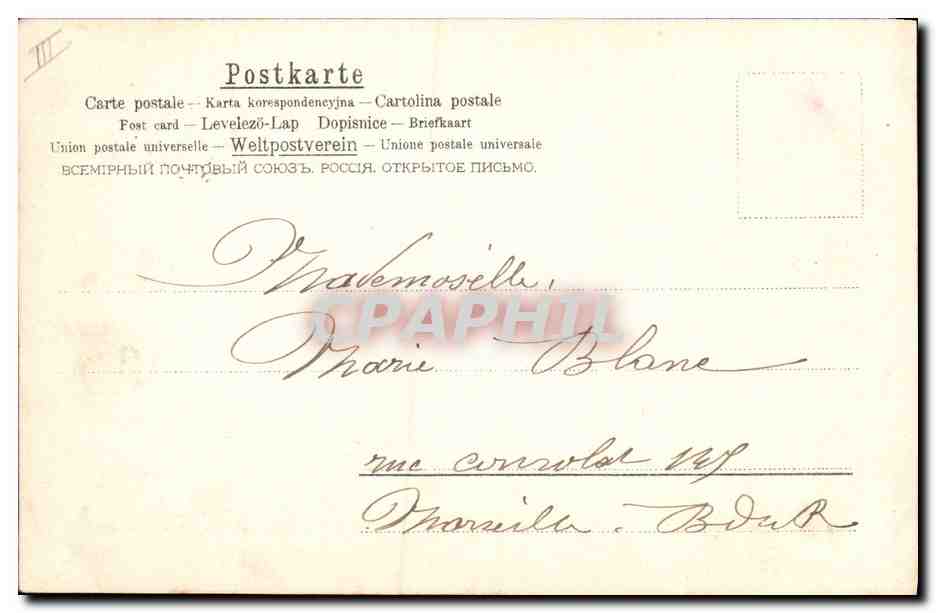 III
Postkarte
Carte postale – Karta korespondencyjna – Cartolina postale
Post card – Levelező-Lap Dopisnice – Briefkaart
Union postale universelle – Weltpostverein – Unione postale universale
ВСЕМІРНЫЙ ПОЧТОВЫЙ СОЮЗЪ. РОССІЯ. ОТКРЫТОЕ ПИСЬМО.
Mademoiselle,
CPAPHIL
Marie Blanc
rue consolat
Marseille. B du R